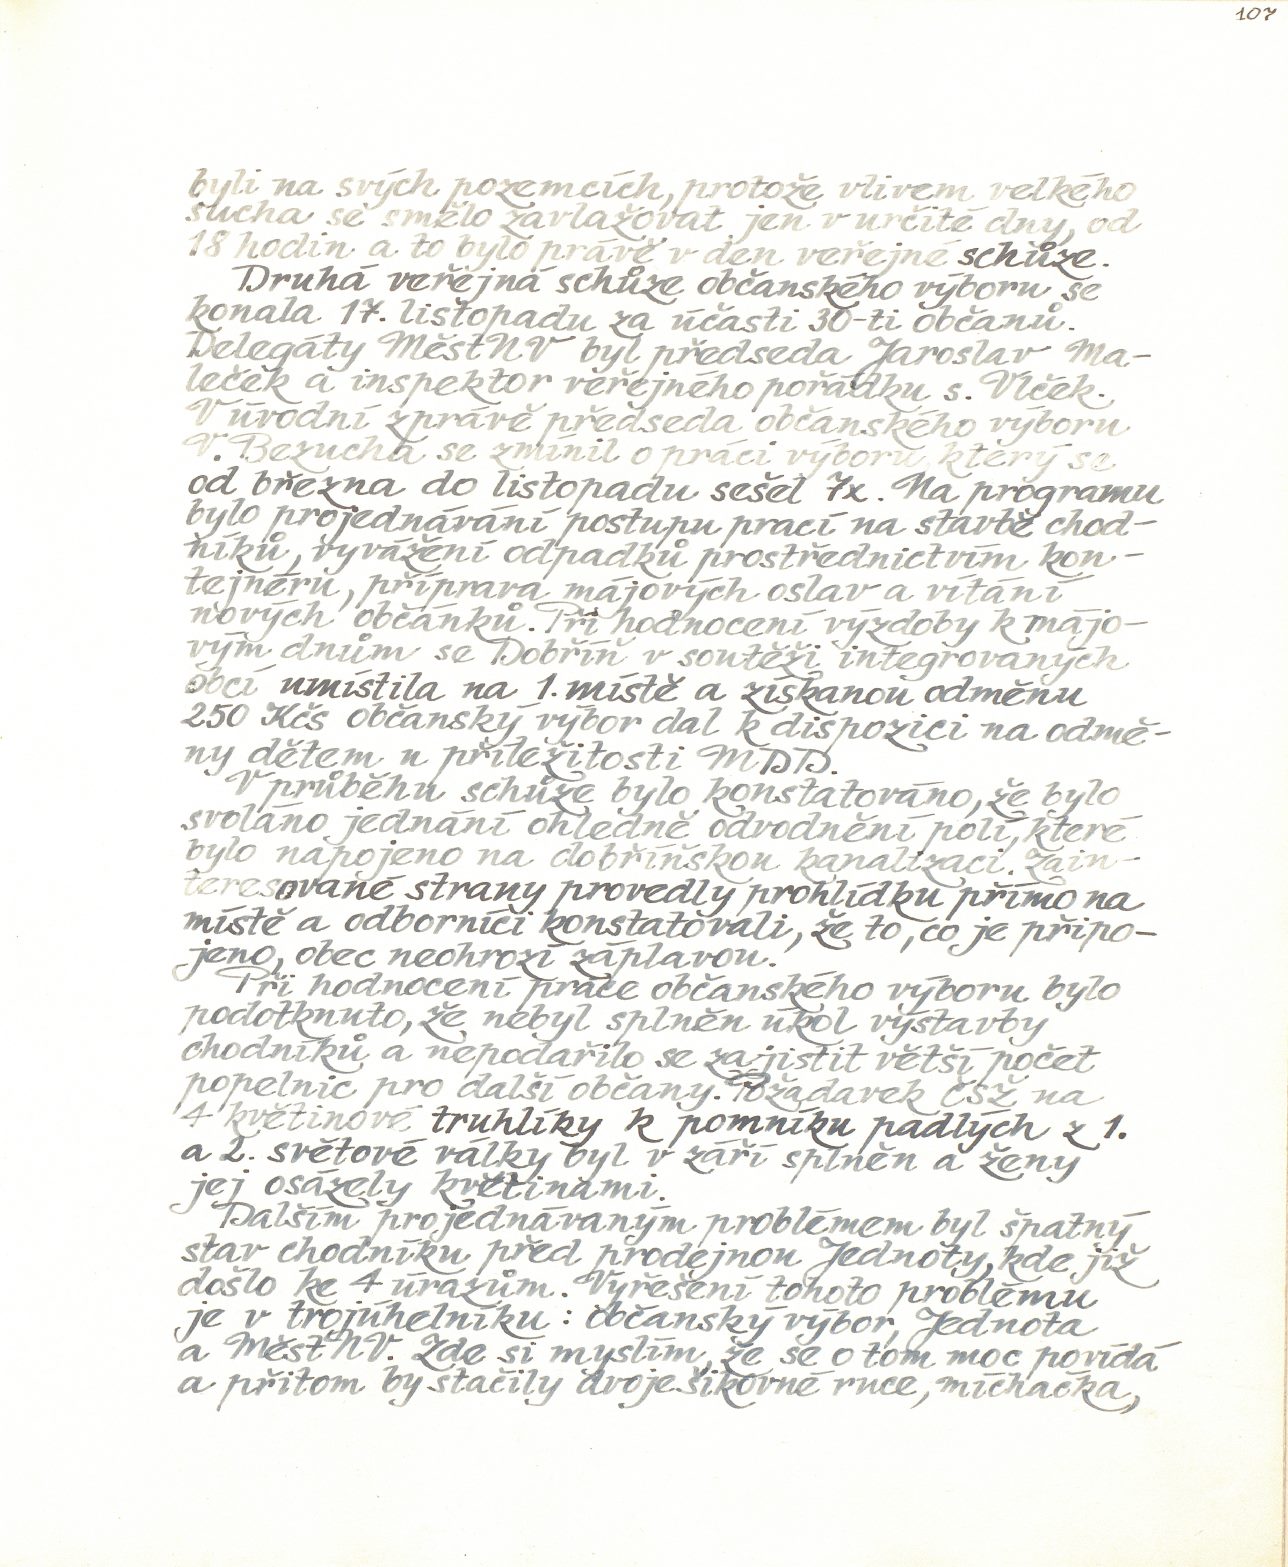 107
byli na svých pozemcích, protože vlivem velkého
sucha se smělo zavlažovat jen v určité dny, od
18 hodin a to bylo právě v den veřejné schůze.
Druhá veřejná schůze občanského výboru se
konala 17. listopadu za účasti 30-ti občanů.
Delegáty MěstNV byl předseda Jaroslav Ma-
leček a inspektor veřejného pořádku s. Vlček.
V úvodní zprávě předseda občanského výboru
V. Bezucha se zmínil o práci výboru, který se
od března do listopadu sešel 7x. Na programu
bylo projednávání postupu prací na stavbě chod-
níků, vyvážení odpadků prostřednictvím kon-
tejnéru, příprava májových oslav a vítání
nových občánků. Při hodnocení výzdoby k májo-
vým dnům se Dobříň v soutěži integrovaných
obcí umístila na 1. místě a získanou odměnu
250 Kčs občanský výbor dal k dispozici na odmě-
ny dětem u příležitosti MDD.
V průběhu schůze bylo konstatováno, že bylo
svoláno jednání ohledně odvodnění polí, které
bylo napojeno na dobříňskou kanalizaci. Zain-
teresované strany provedly prohlídku přímo na
místě a odborníci konstatovali, že to, co je připo-
jeno, obec neohrozí záplavou.
Při hodnocení práce občanského výboru bylo
podotknuto, že nebyl splněn úkol výstavby
chodníků a nepodařilo se zajistit větší počet
popelnic pro další občany. Požadavek ČSŽ na
4 květinové truhlíky k pomníku padlých z 1.
a 2. světové války byl v září splněn a ženy
jej osázely květinami.
Dalším projednávaným problémem byl špatný
stav chodníku před prodejnou Jednoty, kde již
došlo ke 4 úrazům. Vyřešení tohoto problému
je v trojúhelníku: občanský výbor, Jednota
a MěstNV. Zde si myslím, že se o tom moc povídá
a přitom by stačily dvoje šikovné ruce, míchačka,